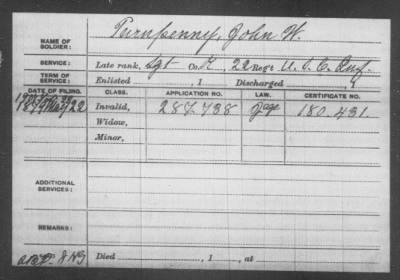 NAME OF SOLDIER: Turnpenny, John W.
SERVICE: Late rank, Sgt Co. I, 22 Reg't U.S.C. Inf.
TERM OF SERVICE: Enlisted , 1 Discharged , 1
DATE OF FILING. CLASS. APPLICATION NO. LAW. CERTIFICATE NO.
1879 May 22 Invalid, 287.738 180.431
Widow,
Minor,
ADDITIONAL SERVICES:
REMARKS:
Died , 1 , at